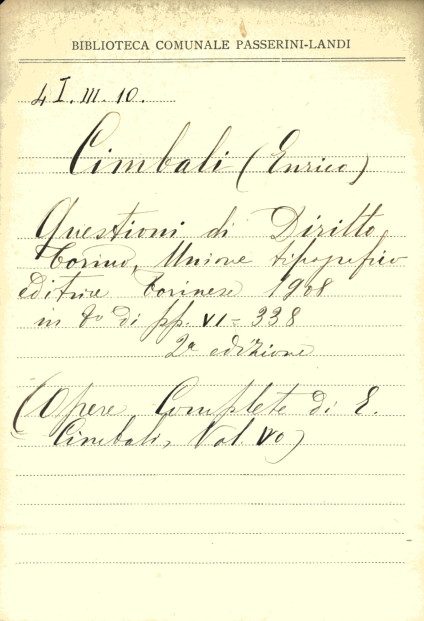 BIBLIOTECA COMUNALE PASSERINI-LANDI
4 I. III. 10.
Cimbali (Enrico)
Questioni di Diritto
Torino, Unione tipografico
editrice Torinese 1908
in 8º di pp. VI-338
2ª edizione
(Opere Complete di E.
Cimbali, Vol. Vº)